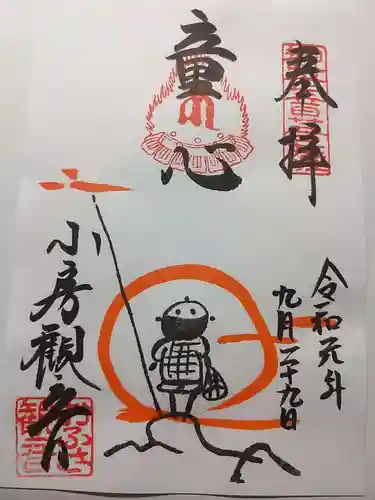 奉拝
童心
令和元年
九月二十九日
小房観音